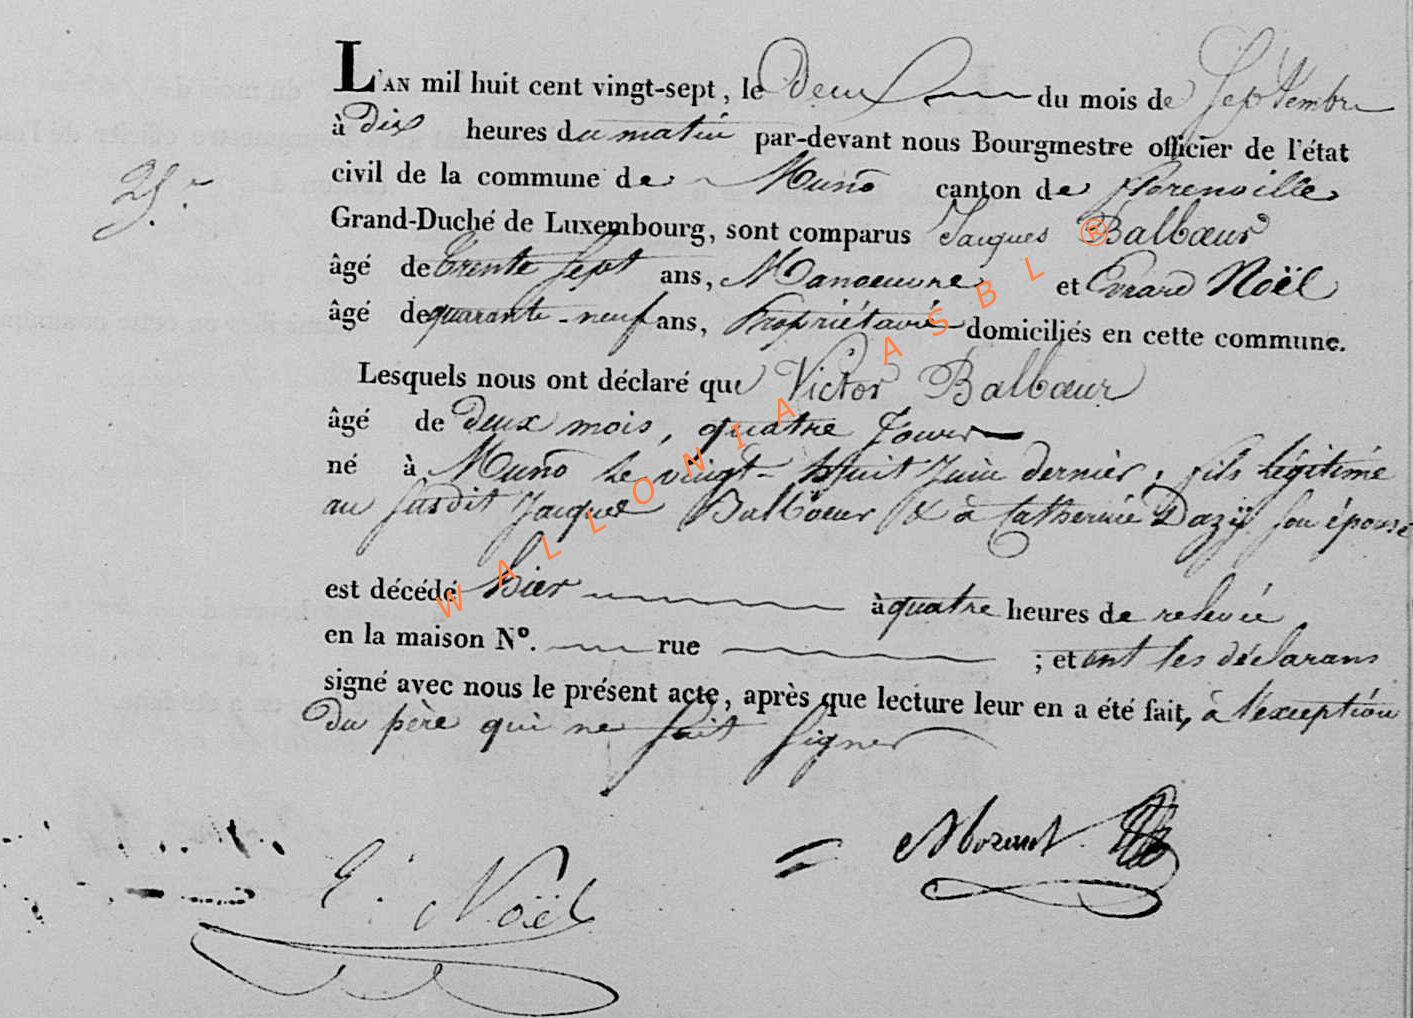 L'AN mil huit cent vingt-sept, le Deux du mois de Septembre
à dix heures du matin par-devant nous Bourgmestre officier de l'état
civil de la commune de Muno canton de Florenville
Grand-Duché de Luxembourg, sont comparus Jacques Balbœur
âgé de trente sept ans, Manoeuvre et Evrard Noël
âgé de quarante-neuf ans, Propriétaire domiciliés en cette commune.
Lesquels nous ont déclaré que Victor Balbœur
âgé de deux mois, quatre Jours
né à Muno le vingt-huit Juin dernier, fils légitime
au susdit Jacques Balboeur & à Catherine Dazÿ son épouse
est décédé hier à quatre heures de relevée
en la maison N°. rue ; et ont les déclarans
signé avec nous le présent acte, après que lecture leur en a été fait, à l'exception
du père qui ne sait signer
E. Noël
WALLONIA ASBL ®